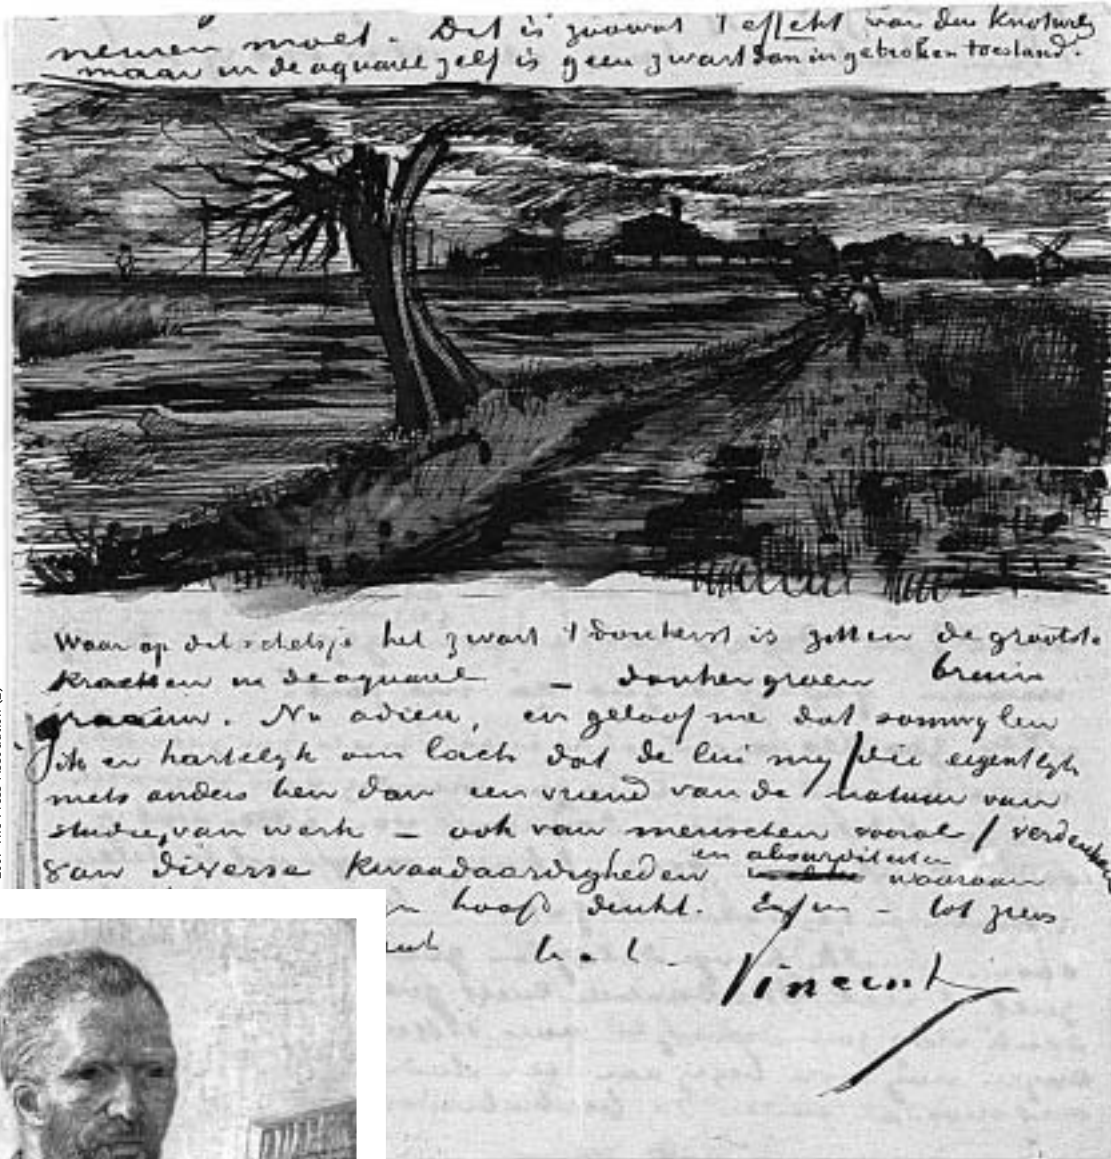 nemen moet. Dit is zoowat 't effekt van den Knotwilg
maar in de aquarel zelf is geen zwart dan in gebroken toestand.
Waar op dit schetsje het zwart 't donkerst is zitten de grootste
krachten in de aquarel — donkergroen bruin
graauw. Nu adieu, en geloof me dat somwylen
ik er hartelyk om lach dat de lui my / die eigentlyk
niets anders ben dan een vriend van de natuur van
studie, van werk — ook van menschen vooral / verdenken
van diverse kwaadaardigheden en absurditeiten waaraan
hoofd denkt. Enfin — tot ziens
Vincent